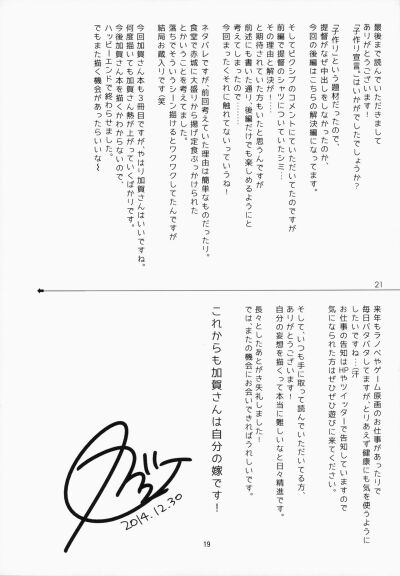 最後まで読んでいただきまして
ありがとうございます！
「子作り宣言」はいかがでしたでしょうか？
「子作り」という題材だったので、
提督がなぜ中出しをしなかったのか、
今回の後編はこちらの解決編になってます。
そしてピクシブのコメントにていただいてたのですが
前編で提督のシャツについていたシミ…
その理由と解決が！…
と期待されていた方もいたと思うんですが
前述にも書いた通り、後編だけでも楽しめるようにと
考えてしまったので……
今回まったくそれに触れてないっていうね！
ネタバレですが、前回考えていた理由は簡単なものだったり。
食堂で赤城に大盛りから揚げ定食ぶっかけられた
とかいうことを考えてました。
落ちでそういうシーン描けるとワクワクしてたんですが
結局お蔵入りです（笑
今回加賀さん本も3冊目ですが、やはり加賀さんはいいですね。
何度描いても加賀さん熱が上がっていくばかりです。
今後加賀さん本を描くかわからないので、
ハッピーエンドで終わらせました。
でもまた描く機会があったらいいな～
21
来年もラノベやゲーム原画のお仕事があったりで
毎日バタバタしてますが、とりあえず健康にも気を使うように
したいですね…(汗
お仕事の告知はHPやツイッターで告知していますので
気になられた方はぜひぜひ遊びに来てください。
そして、いつも手に取って読んでいただいてる方、
ありがとうございます！
自分の妄想を描くって本当に難しいなと日々精進です。
長々としたあとがき失礼しました！
では、またの機会にお会いできればうれしいです。
これからも加賀さんは自分の嫁です！
2014.12.30
19